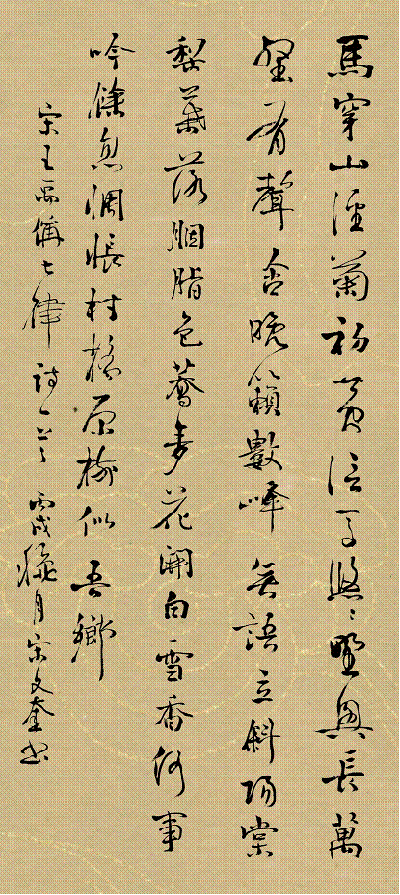 馬穿山徑菊初黃信馬悠〻野興長萬
壑有聲含晚籟數峰無語立斜陽棠
梨葉落胭脂色蕎麥花開白雪香何事
吟餘忽惆悵村橋原樹似吾鄉
宋王禹偁七律詩一首 丙戌月宋文奎書